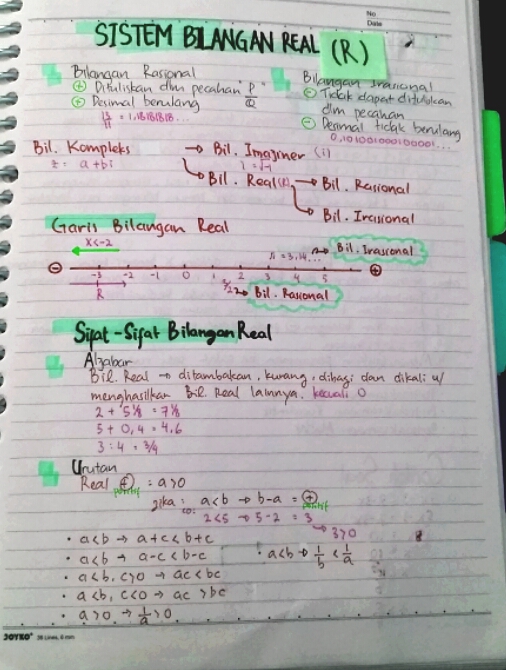 No
Date
SISTEM BILANGAN REAL (R)
Bilangan Rasional
+ Dituliskan dlm pecahan "P/Q"
+ Desimal berulang
13/11 = 1,18181818...
Bilangan Irasional
- Tidak dapat dituliskan
dlm pecahan
- Desimal tidak berulang
0,101001000100001...
Bil. Kompleks → Bil. Imajiner (i)
z = a + bi
i = √-1
Bil. Real (R) → Bil. Rasional
Bil. Irasional
Garis Bilangan Real
x<-2
π = 3,14... → Bil. Irasional
- -3 -2 -1 0 1 2 3 4 5 +
R
→ Bil. Rasional
Sifat-Sifat Bilangan Real
Aljabar
Bil. Real → ditambakan, kurang, dibagi dan dikali u/
menghasilkan Bil. Real lainnya. kecuali 0
2 + 5 1/8 = 7 1/8
5 + 0,4 = 4,6
3 : 4 = 3/4
Urutan
Real + : a>0
positif
jika : a<b → b-a = +
positif
co: 2<5 → 5-2 = 3
3>0
• a<b → a+c<b+c
• a<b → a-c<b-c
• a<b → 1/b < 1/a
• a<b, c>0 → ac<bc
• a<b, c<0 → ac>bc
• a>0 → 1/a>0
JOYKO 38 Lines, 6 mm